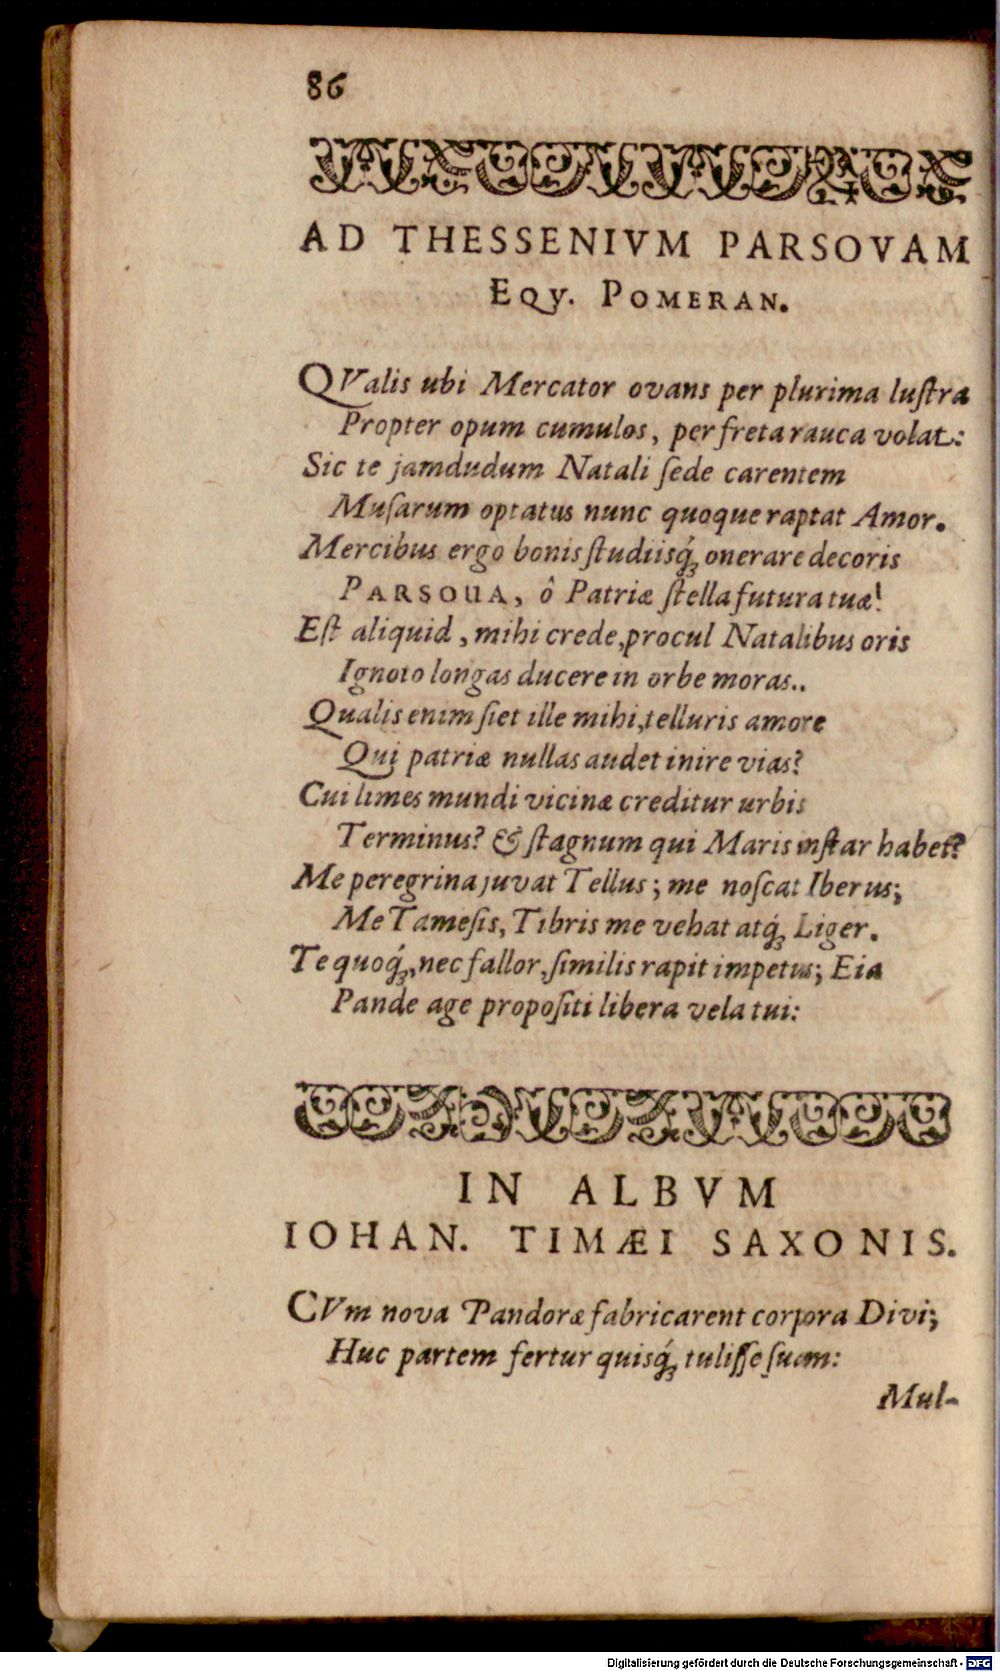 86
AD THESSENIVM PARSOVAM
EQV. POMERAN.
QValis ubi Mercator ovans per plurima luſtra
Propter opum cumulos, per freta rauca volat:
Sic te jamdudum Natali ſede carentem
Muſarum optatus nunc quoque raptat Amor.
Mercibus ergo bonis ſtudiisq́ꝫ onerare decoris
PARSOUA, ô Patriæ ſtella futura tuæ!
Eſt aliquid, mihi crede, procul Natalibus oris
Ignoto longas ducere in orbe moras..
Qualis enim ſiet ille mihi, telluris amore
Qui patriæ nullas audet inire vias?
Cui limes mundi vicinæ creditur urbis
Terminus? & ſtagnum qui Maris inſtar habet?
Me peregrina juvat Tellus; me noſcat Iberus;
Me Tameſis, Tibris me vehat atq́ꝫ Liger.
Te quoq́ꝫ, nec fallor, ſimilis rapit impetus; Eia
Pande age propoſiti libera vela tui:
IN ALBVM
IOHAN. TIMÆI SAXONIS.
CVm nova Pandoræ fabricarent corpora Divi;
Huc partem fertur quisq́ꝫ tuliſſe ſuam:
Mul-
Digitalisierung gefördert durch die Deutsche Forschungsgemeinschaft - DFG